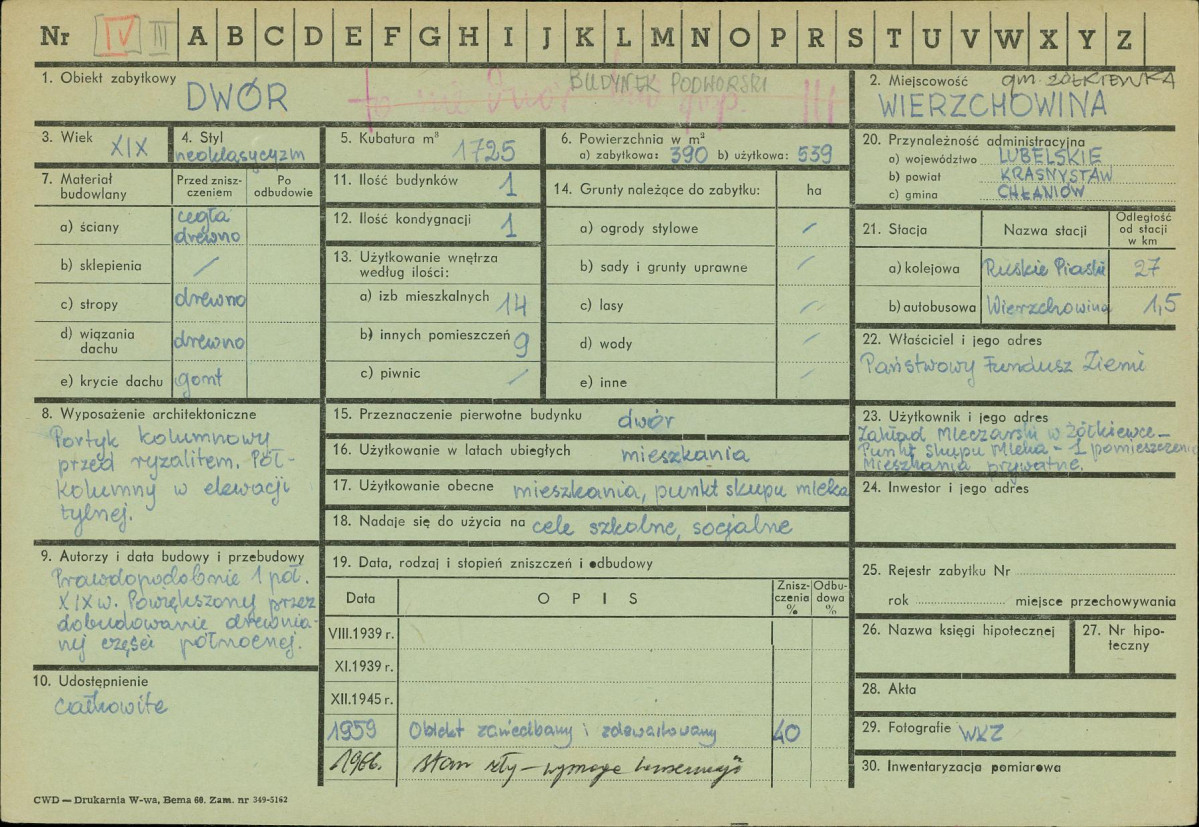 Nr IV III A B C D E F G H I J K L M N O P R S T U V W X Y Z
1. Obiekt zabytkowy
DWÓR
BUDYNEK PODWORSKI
to nie Dwór
III
2. Miejscowość
gm. ŻÓŁKIEWKA
WIERZCHOWINA
3. Wiek XIX
4. Styl
neoklasycyzm
5. Kubatura m³
1725
6. Powierzchnia w m²
a) zabytkowa: 390 b) użytkowa: 539
20. Przynależność administracyjna
a) województwo LUBELSKIE
b) powiat KRASNYSTAW
c) gmina CHŁANIÓW
7. Materiał budowlany
Przed znisz-
czeniem
Po
odbudowie
a) ściany cegła
drewno
b) sklepienia /
c) stropy drewno
d) wiązania
dachu drewno
e) krycie dachu gont
11. Ilość budynków 1
12. Ilość kondygnacji 1
13. Użytkowanie wnętrza
według ilości:
a) izb mieszkalnych 14
b) innych pomieszczeń 9
c) piwnic /
14. Grunty należące do zabytku: ha
a) ogrody stylowe /
b) sady i grunty uprawne /
c) lasy /
d) wody /
e) inne /
21. Stacja Nazwa stacji
Odległość
od stacji
w km
a) kolejowa Ruskie Piaski 27
b) autobusowa Wierzchowina 1,5
22. Właściciel i jego adres
Państwowy Fundusz Ziemi
8. Wyposażenie architektoniczne
Portyk kolumnowy
przed ryzalitem. Pół-
kolumny w elewacji
tylnej.
15. Przeznaczenie pierwotne budynku dwór
16. Użytkowanie w latach ubiegłych mieszkania
17. Użytkowanie obecne mieszkania, punkt skupu mleka
18. Nadaje się do użycia na cele szkolne, socjalne
23. Użytkownik i jego adres
Zakład Mleczarski w Żółkiewce –
Punkt skupu mleka – 1 pomieszczenie
Mieszkania prywatne.
24. Inwestor i jego adres
9. Autorzy i data budowy i przebudowy
Prawdopodobnie 1 poł.
XIX w. Powiększony przez
dobudowanie drewnia-
nej części północnej.
10. Udostępnienie
całkowite
19. Data, rodzaj i stopień zniszczeń i odbudowy
Data OPIS
Znisz-
czenia
%
Odbu-
dowa
%
VIII.1939 r.
XI.1939 r.
XII.1945 r.
1959 Obiekt zaniedbany i zdewastowany 40
1966. stan zły – wymaga
25. Rejestr zabytku Nr
rok miejsce przechowywania
26. Nazwa księgi hipotecznej
27. Nr hipo-
teczny
28. Akta
29. Fotografie WKZ
30. Inwentaryzacja pomiarowa
CWD — Drukarnia W-wa, Bema 60. Zam. nr 349-5162